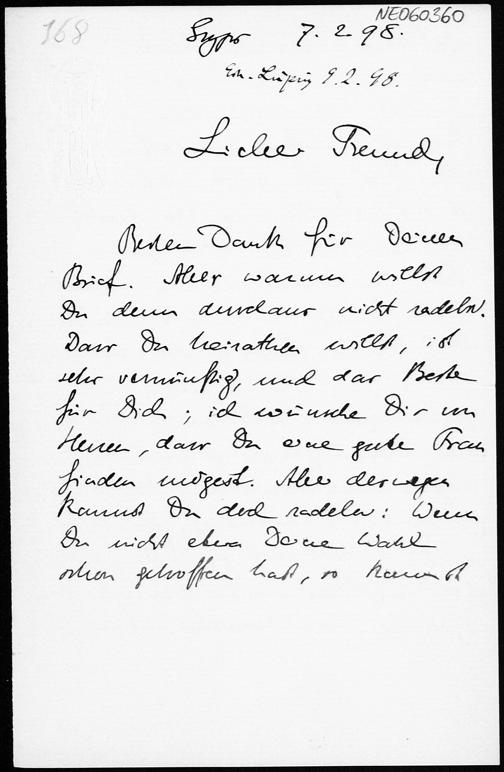 168
NE060360
7. 2. 98.
9. 2. 98.
Lieber Freund,
Besten Dank für Deinen
Brief. Aber warum willst
Du denn durchaus nicht radeln.
Dass Du heirathen willst, ist
sehr vernünftig, und das Beste
für Dich; ich wünsche Dir von
Herzen, dass Du eine gute Frau
finden mögest. Aber deswegen
kannst Du doch radeln: Wenn
Du nicht etwa Deine Wahl
schon getroffen hast, so kannst